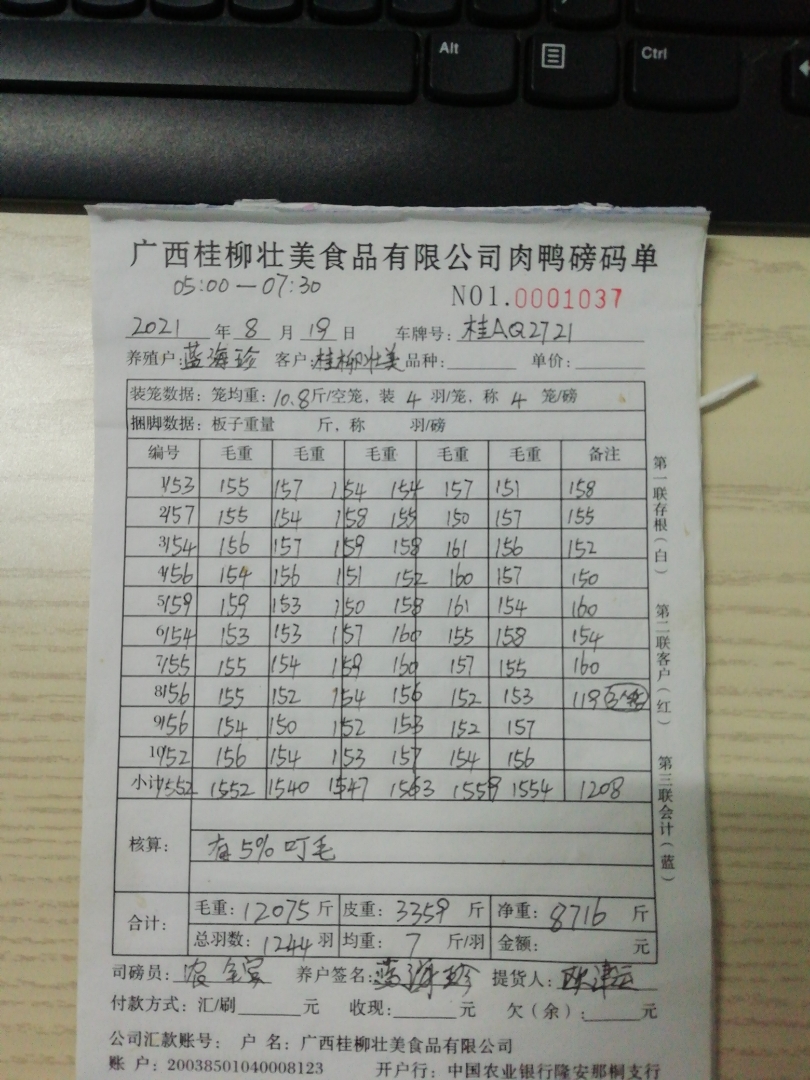 Alt
Ctrl
广西桂柳壮美食品有限公司肉鸭磅码单
05:00—07:30
NO1.0001037
2021年8月19日 车牌号:桂AQ2721
养殖户:蓝海珍 客户:桂柳壮美 品种: 单价:
装笼数据: 笼均重:10.8斤/空笼, 装4羽/笼, 称4笼/磅
捆脚数据: 板子重量 斤, 称 羽/磅
编号 毛重 毛重 毛重 毛重 毛重 备注
1 153 155 157 154 154 157 151 158
2 157 155 154 158 155 150 157 155
3 154 156 157 159 158 161 156 152
4 156 154 156 151 152 160 157 150
5 159 159 153 150 158 161 154 160
6 154 153 153 157 160 155 158 154
7 155 155 154 159 160 157 155 160
8 156 155 152 154 156 152 153 119
9 156 154 150 152 153 152 157
10 152 156 154 153 157 154 156
小计 1552 1552 1540 1547 1563 1559 1554 1208
核算: 有5%叮毛
合计: 毛重:12075斤 皮重:3359斤 净重:8716斤
总羽数:1244羽 均重:7斤/羽 金额: 元
司磅员: 养户签名:蓝海珍 提货人:
付款方式: 汇/刷 元 收现: 元 欠(余): 元
公司汇款账号: 户 名: 广西桂柳壮美食品有限公司
账 户: 20038501040008123 开户行: 中国农业银行隆安那桐支行
第一联存根(白)
第二联客户(红)
第三联会计(蓝)